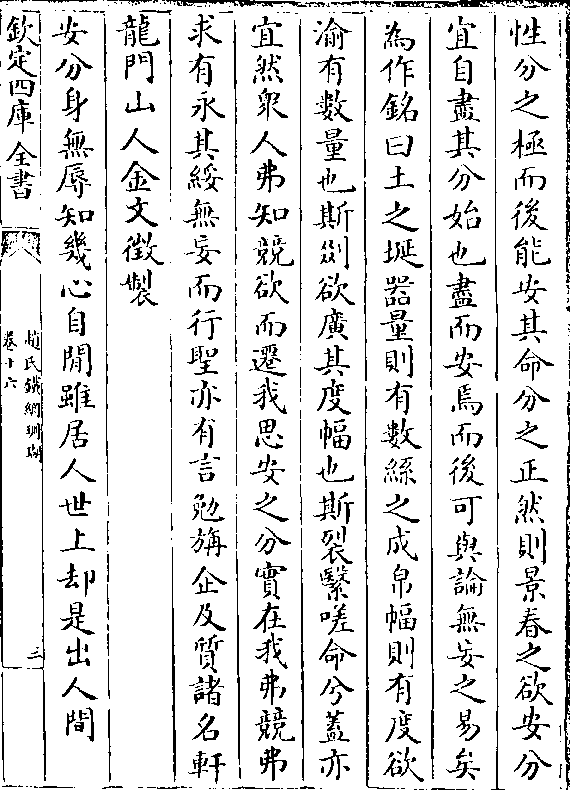 性分之極而後能安其命分之正然則景春之欲安分
宜自盡其分始也盡而安焉而後可與論無妄之易矣
為作銘曰土之埏器量則有數絲之成帛幅則有度欲
渝有數量也斯㓨欲廣其度幅也斯裂繄嗟命兮蓋亦
宜然衆人弗知競欲而遷我思安之分實在我弗競弗
求有永其綏無妄而行聖亦有言勉旃企及質諸名軒
龍門山人金文徴製
安分身無辱知幾心自閒雖居人世上却是出人間
欽定四庫全書
趙氏鐵網珊瑚
卷十六
三